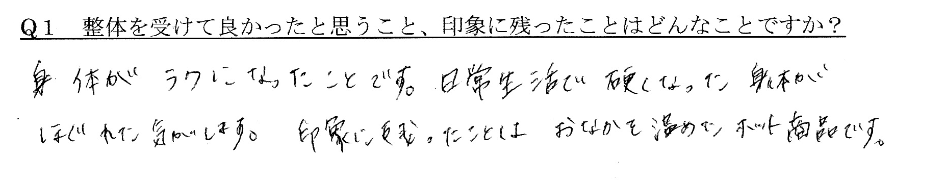 Q1　整体を受けて良かったと思うこと、印象に残ったことはどんなことですか？
身体が ラクになったことです。日常生活で 硬くなった 身体が
ほぐれた気がします。 印象に残ったことは おなかを温めた ホット商品です。